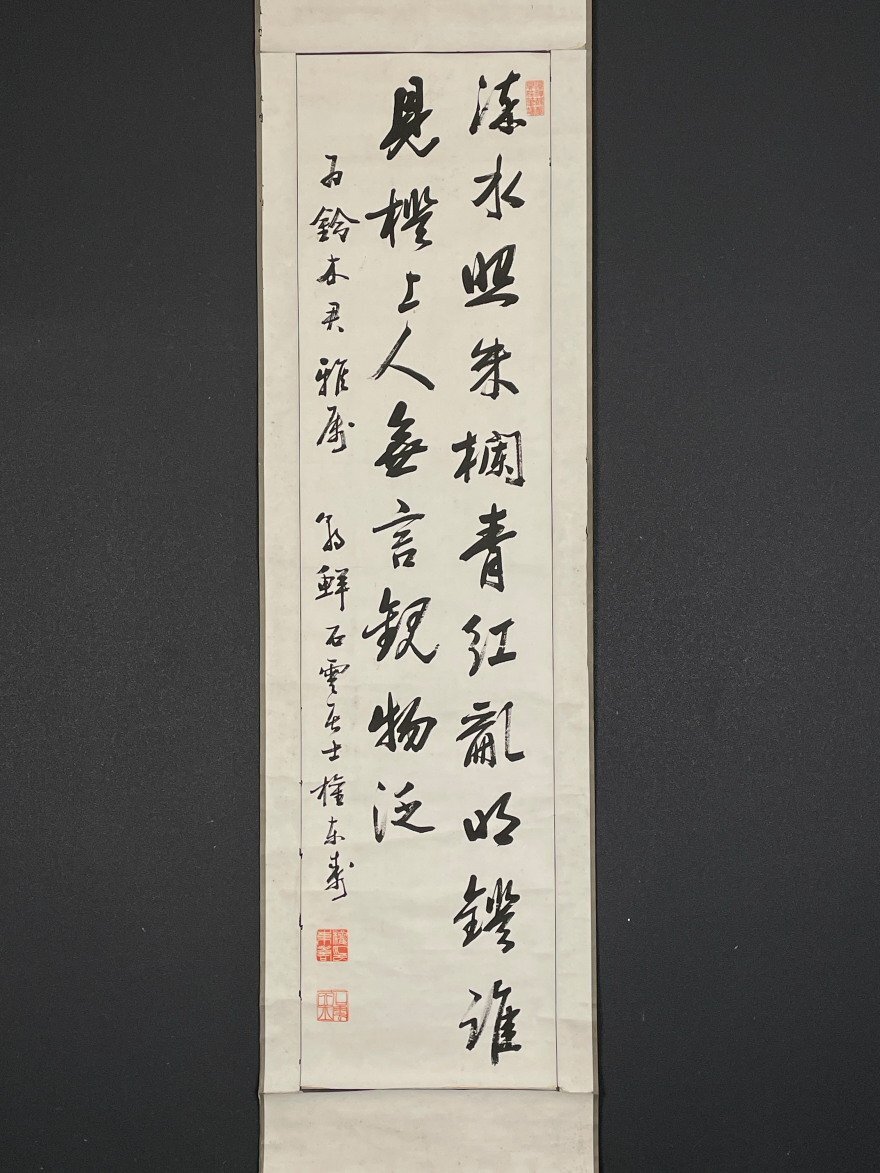 淥水照朱欄青紅亂明鑑誰
見檻上人無言觀物泛
為鈴木君雅属 朝鮮石雲居士權東壽